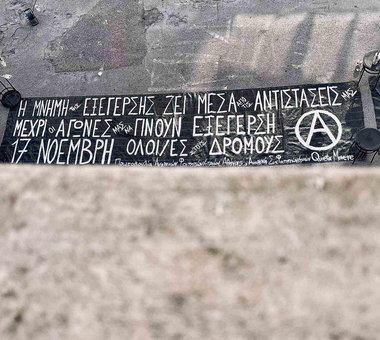 Η ΜΝΗΜΗ ΤΗΣ ΕΞΕΓΕΡΣΗΣ ΖΕΙ ΜΕΣΑ ΑΠΟ ΤΙΣ ΑΝΤΙΣΤΑΣΕΙΣ ΜΑΣ
ΜΕΧΡΙ ΟΙ ΑΓΩΝΕΣ ΜΑΣ ΝΑ ΠΝΟΥΝ ΕΞΕΓΕΡΣΗ
17 ΝΟΕΜΒΡΗ ΟΛΟΙ/ΕΣ ΣΤΟΥΣ ΔΡΟΜΟΥΣ